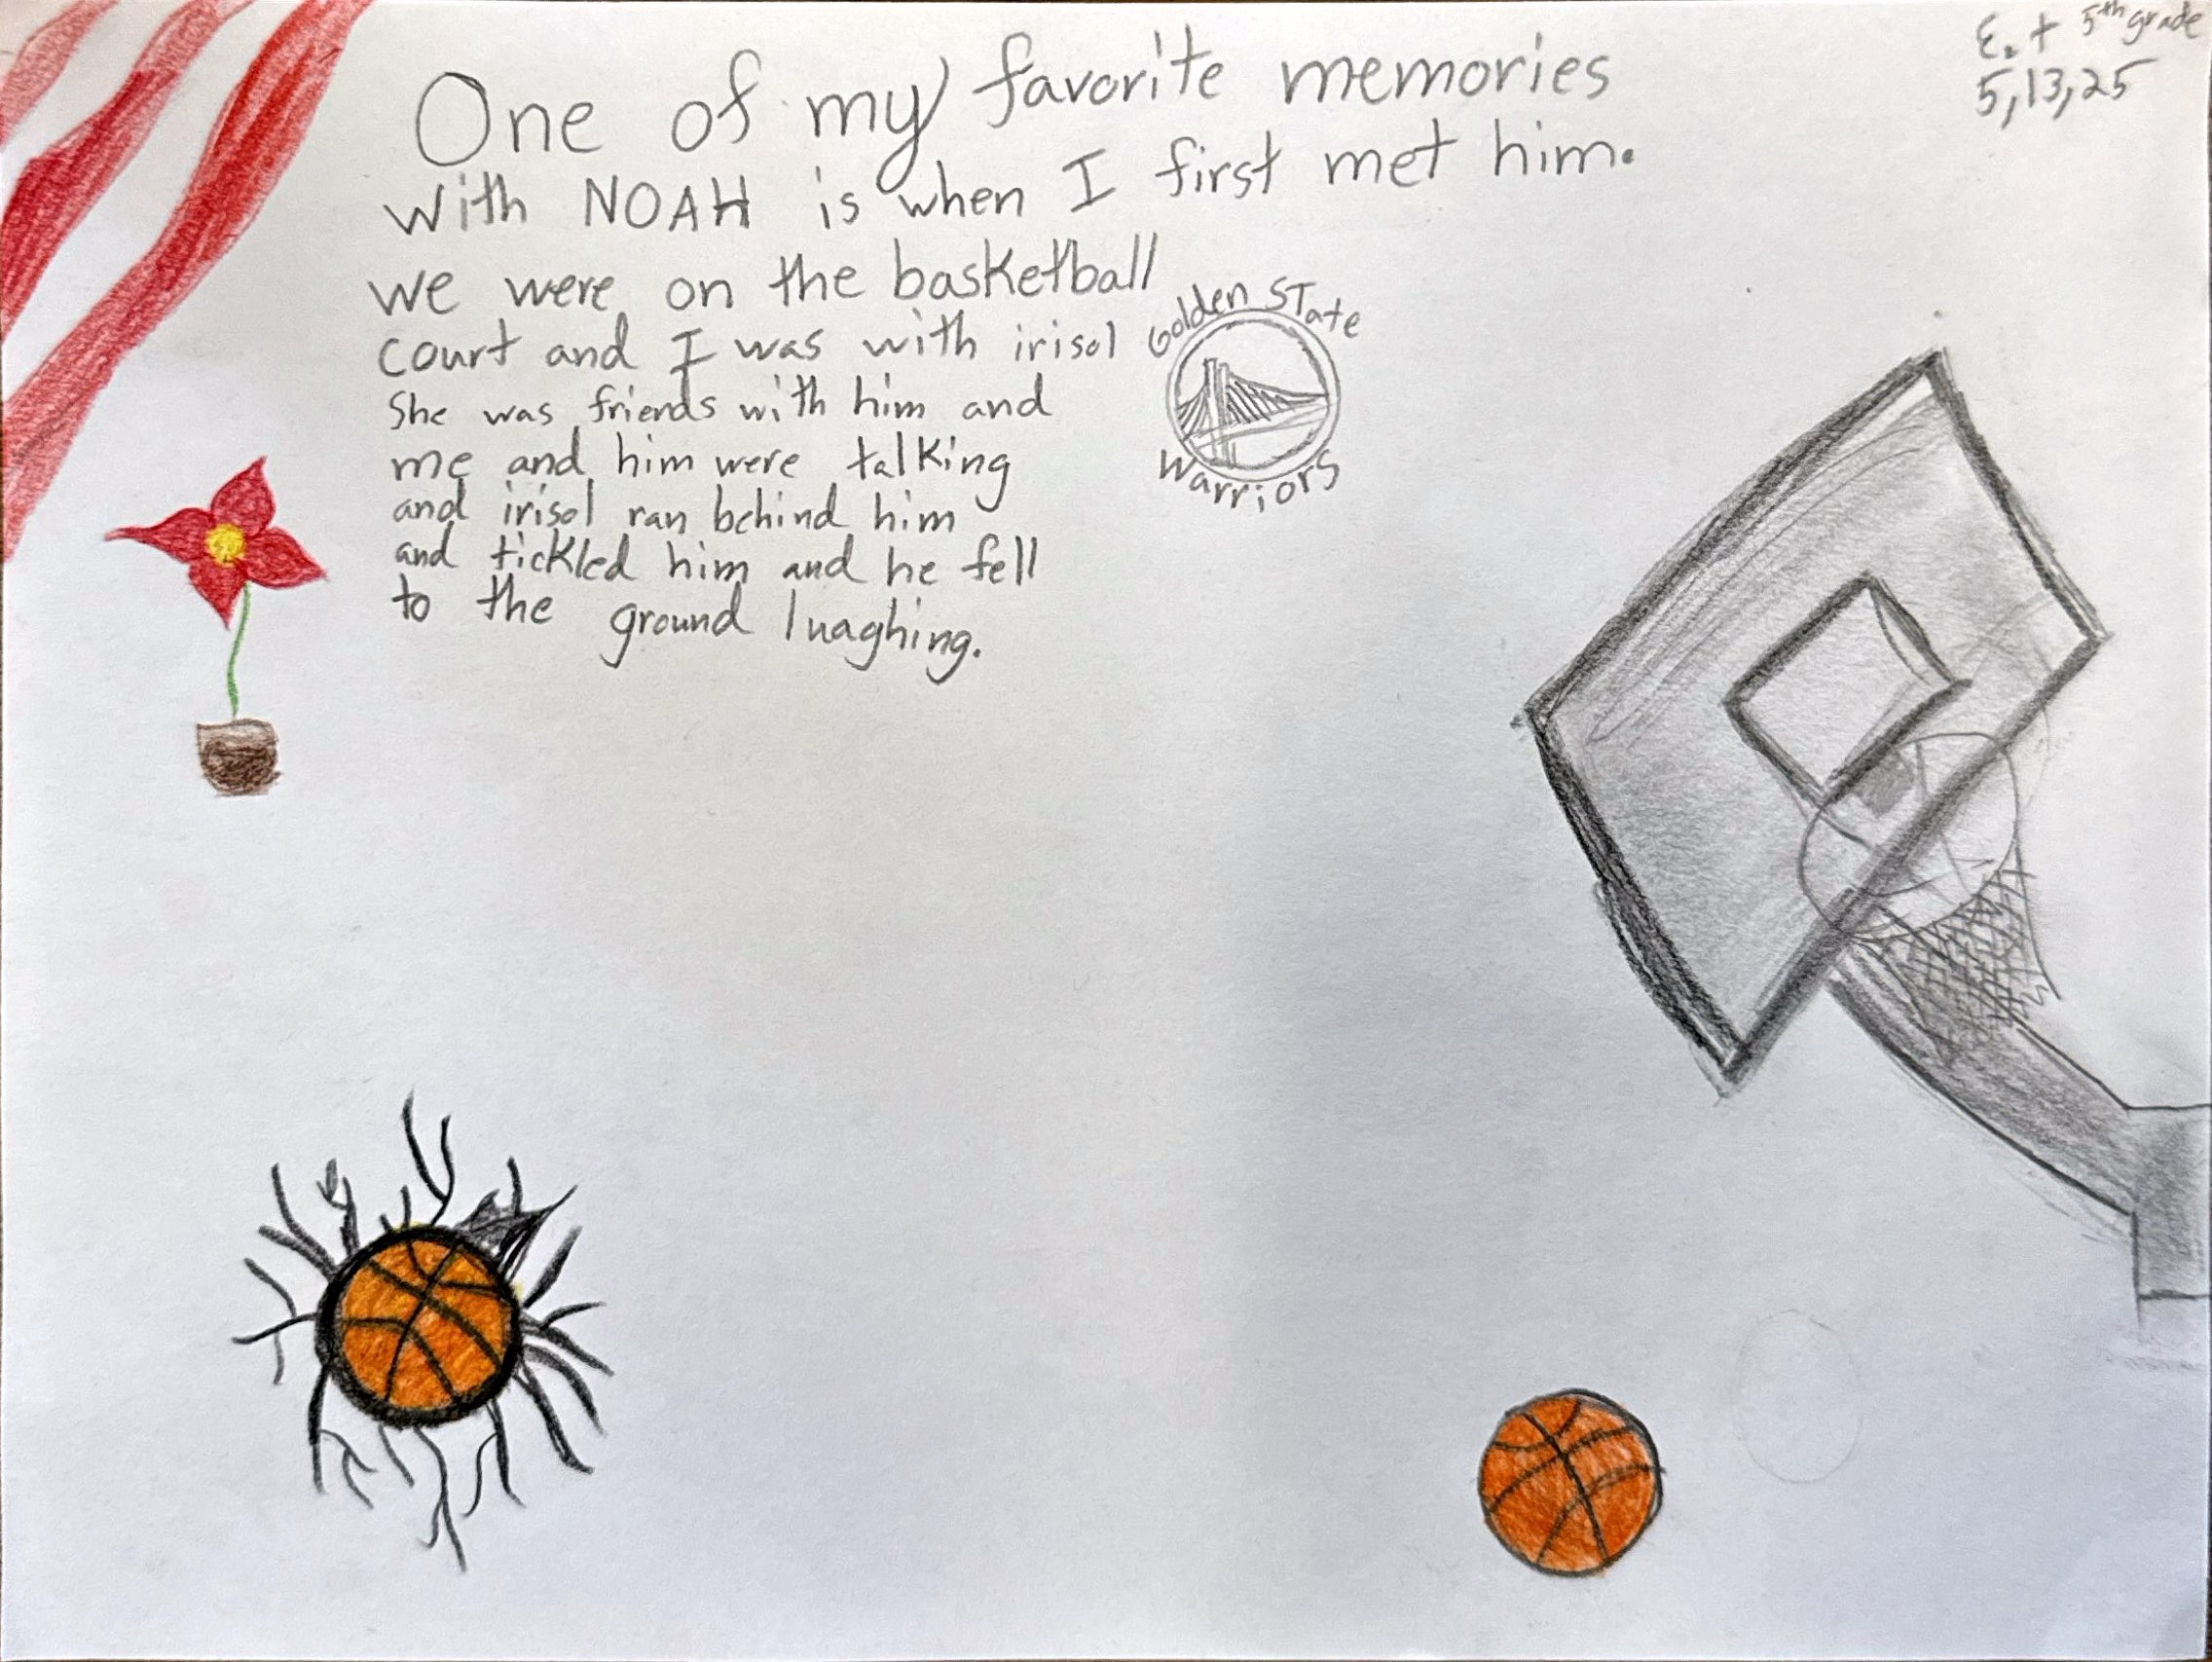 E. + 5th grade
5,13,25
One of my favorite memories
with NOAH is when I first met him.
we were on the basketball
court and I was with irisol
She was friends with him and
me and him were talking
and irisol ran behind him
and tickled him and he fell
to the ground luaghing.
Golden STate
Warriors